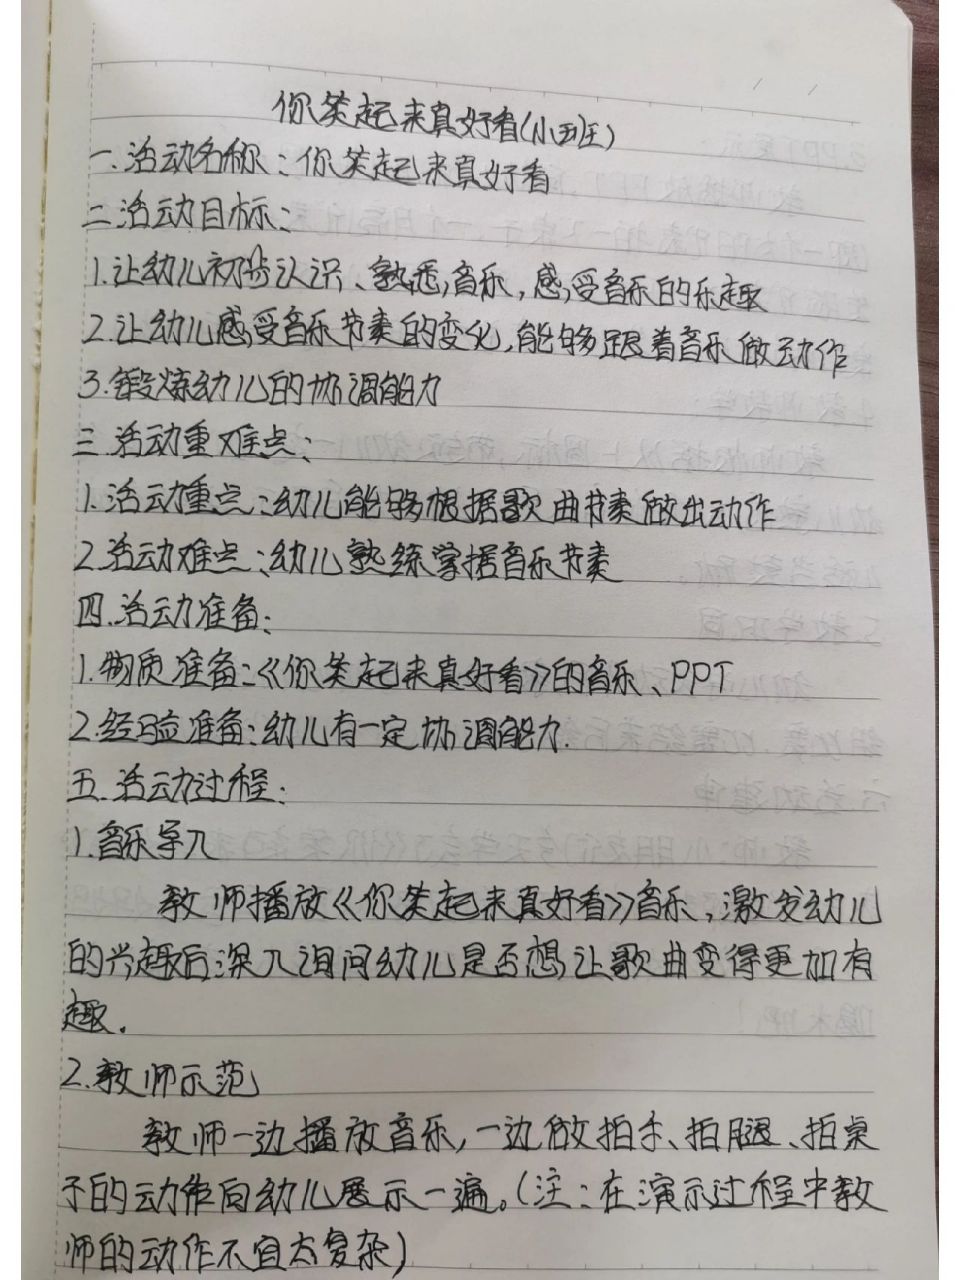 你笑起来真好看(小班)
一.活动名称:你笑起来真好看
二.活动目标:
1.让幼儿初步认识、熟悉音乐,感受音乐的乐趣
2.让幼儿感受音乐节奏的变化,能够跟着音乐做动作
3.锻炼幼儿的协调能力
三.活动重难点:
1.活动重点:幼儿能够根据歌曲节奏做出动作
2.活动难点:幼儿熟练掌握音乐节奏
四.活动准备:
1.物质准备:《你笑起来真好看》的音乐、PPT
2.经验准备:幼儿有一定协调能力.
五.活动过程:
1.音乐导入
教师播放《你笑起来真好看》音乐,激发幼儿
的兴趣后深入询问幼儿是否想让歌曲变得更加有
趣.
2.教师示范
教师一边播放音乐,一边做拍手、拍腿、拍桌
子的动作向幼儿展示一遍。(注:在演示过程中教
师的动作不宜太复杂)